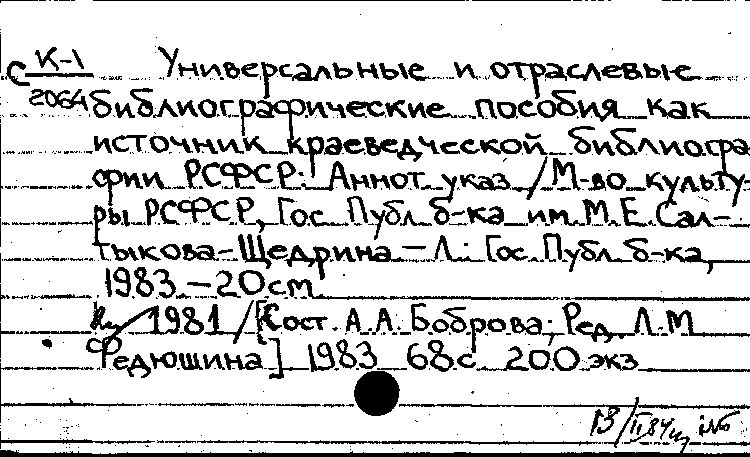 С К-1 Универсальные и отраслевые
2064 библиографические пособия как
источник краеведческой библиогра
фии РСФСР: Аннот. указ./М-во культу-
ры РСФСР, Гос. Публ. б-ка им. М. Е. Сал-
тыкова-Щедрина. — Л.: Гос. Публ. б-ка,
1983. — 20 см.
1981/[Сост. А. А. Боброва; Ред. Л. М
Федюшина] 1983 68 с. 200 экз
13/II 84